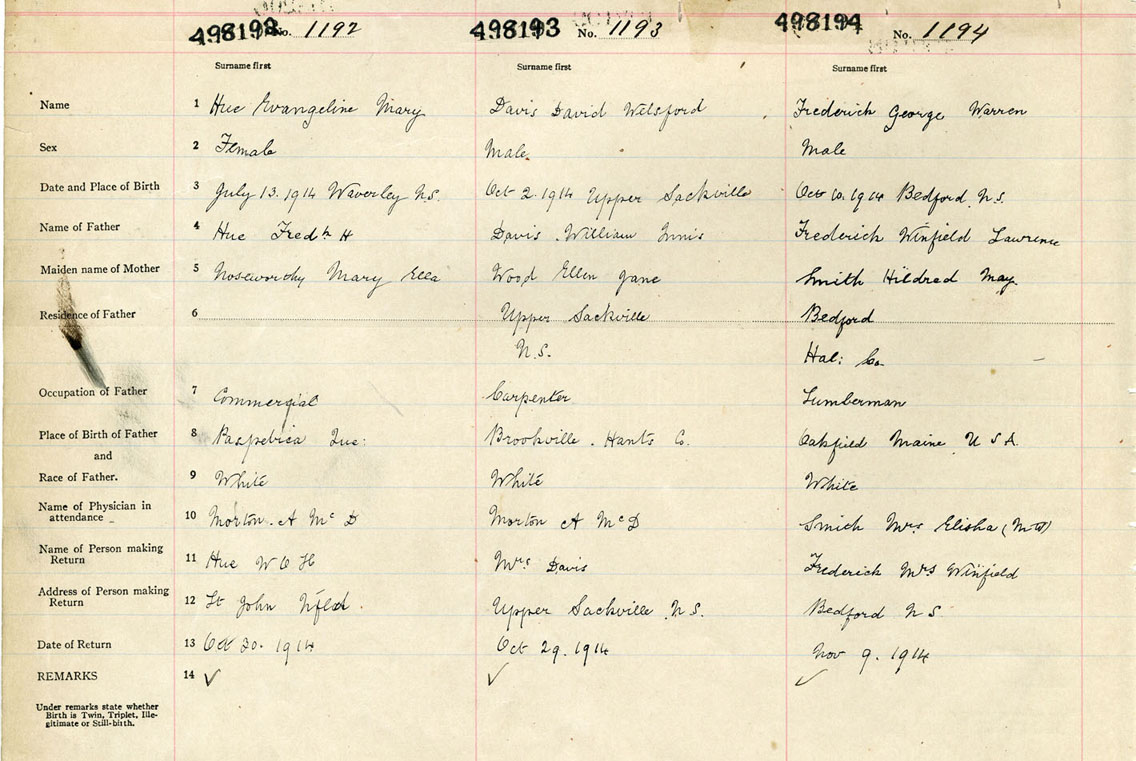 498192 No. 1192 498193 No. 1193 498194 No. 1194
Surname first Surname first Surname first
Name 1 Hue Evangeline Mary Davis David Welsford Frederick George Warren
Sex 2 Female Male Male
Date and Place of Birth 3 July 13. 1914 Waverley N.S. Oct 2. 1914 Upper Sackville Oct 10. 1914 Bedford N.S.
Name of Father 4 Hue Fredk H Davis William Innis Frederick Winfield Lawrence
Maiden name of Mother 5 Noseworthy Mary Ella Wood Ellen Jane Smith Hildred May.
Residence of Father 6 Upper Sackville Bedford
N.S. Hal: Co.
Occupation of Father 7 Commercial Carpenter Lumberman
Place of Birth of Father 8 Paspebica Que: Brookville. Hants Co. Oakfield Maine U S A.
and
Race of Father. 9 White White White
Name of Physician in
attendance 10 Morton. A Mc D Morton A Mc D Smith Mrs Elisha (M W)
Name of Person making
Return 11 Hue W O H Mrs Davis Frederick Mrs Winfield
Address of Person making
Return 12 St John Nfld. Upper Sackville N.S. Bedford N S.
Date of Return 13 Oct 30. 1914 Oct 29. 1914 Nov 9. 1914
REMARKS 14 ✓ ✓ ✓
Under remarks state whether
Birth is Twin, Triplet, Ille-
gitimate or Still-birth.